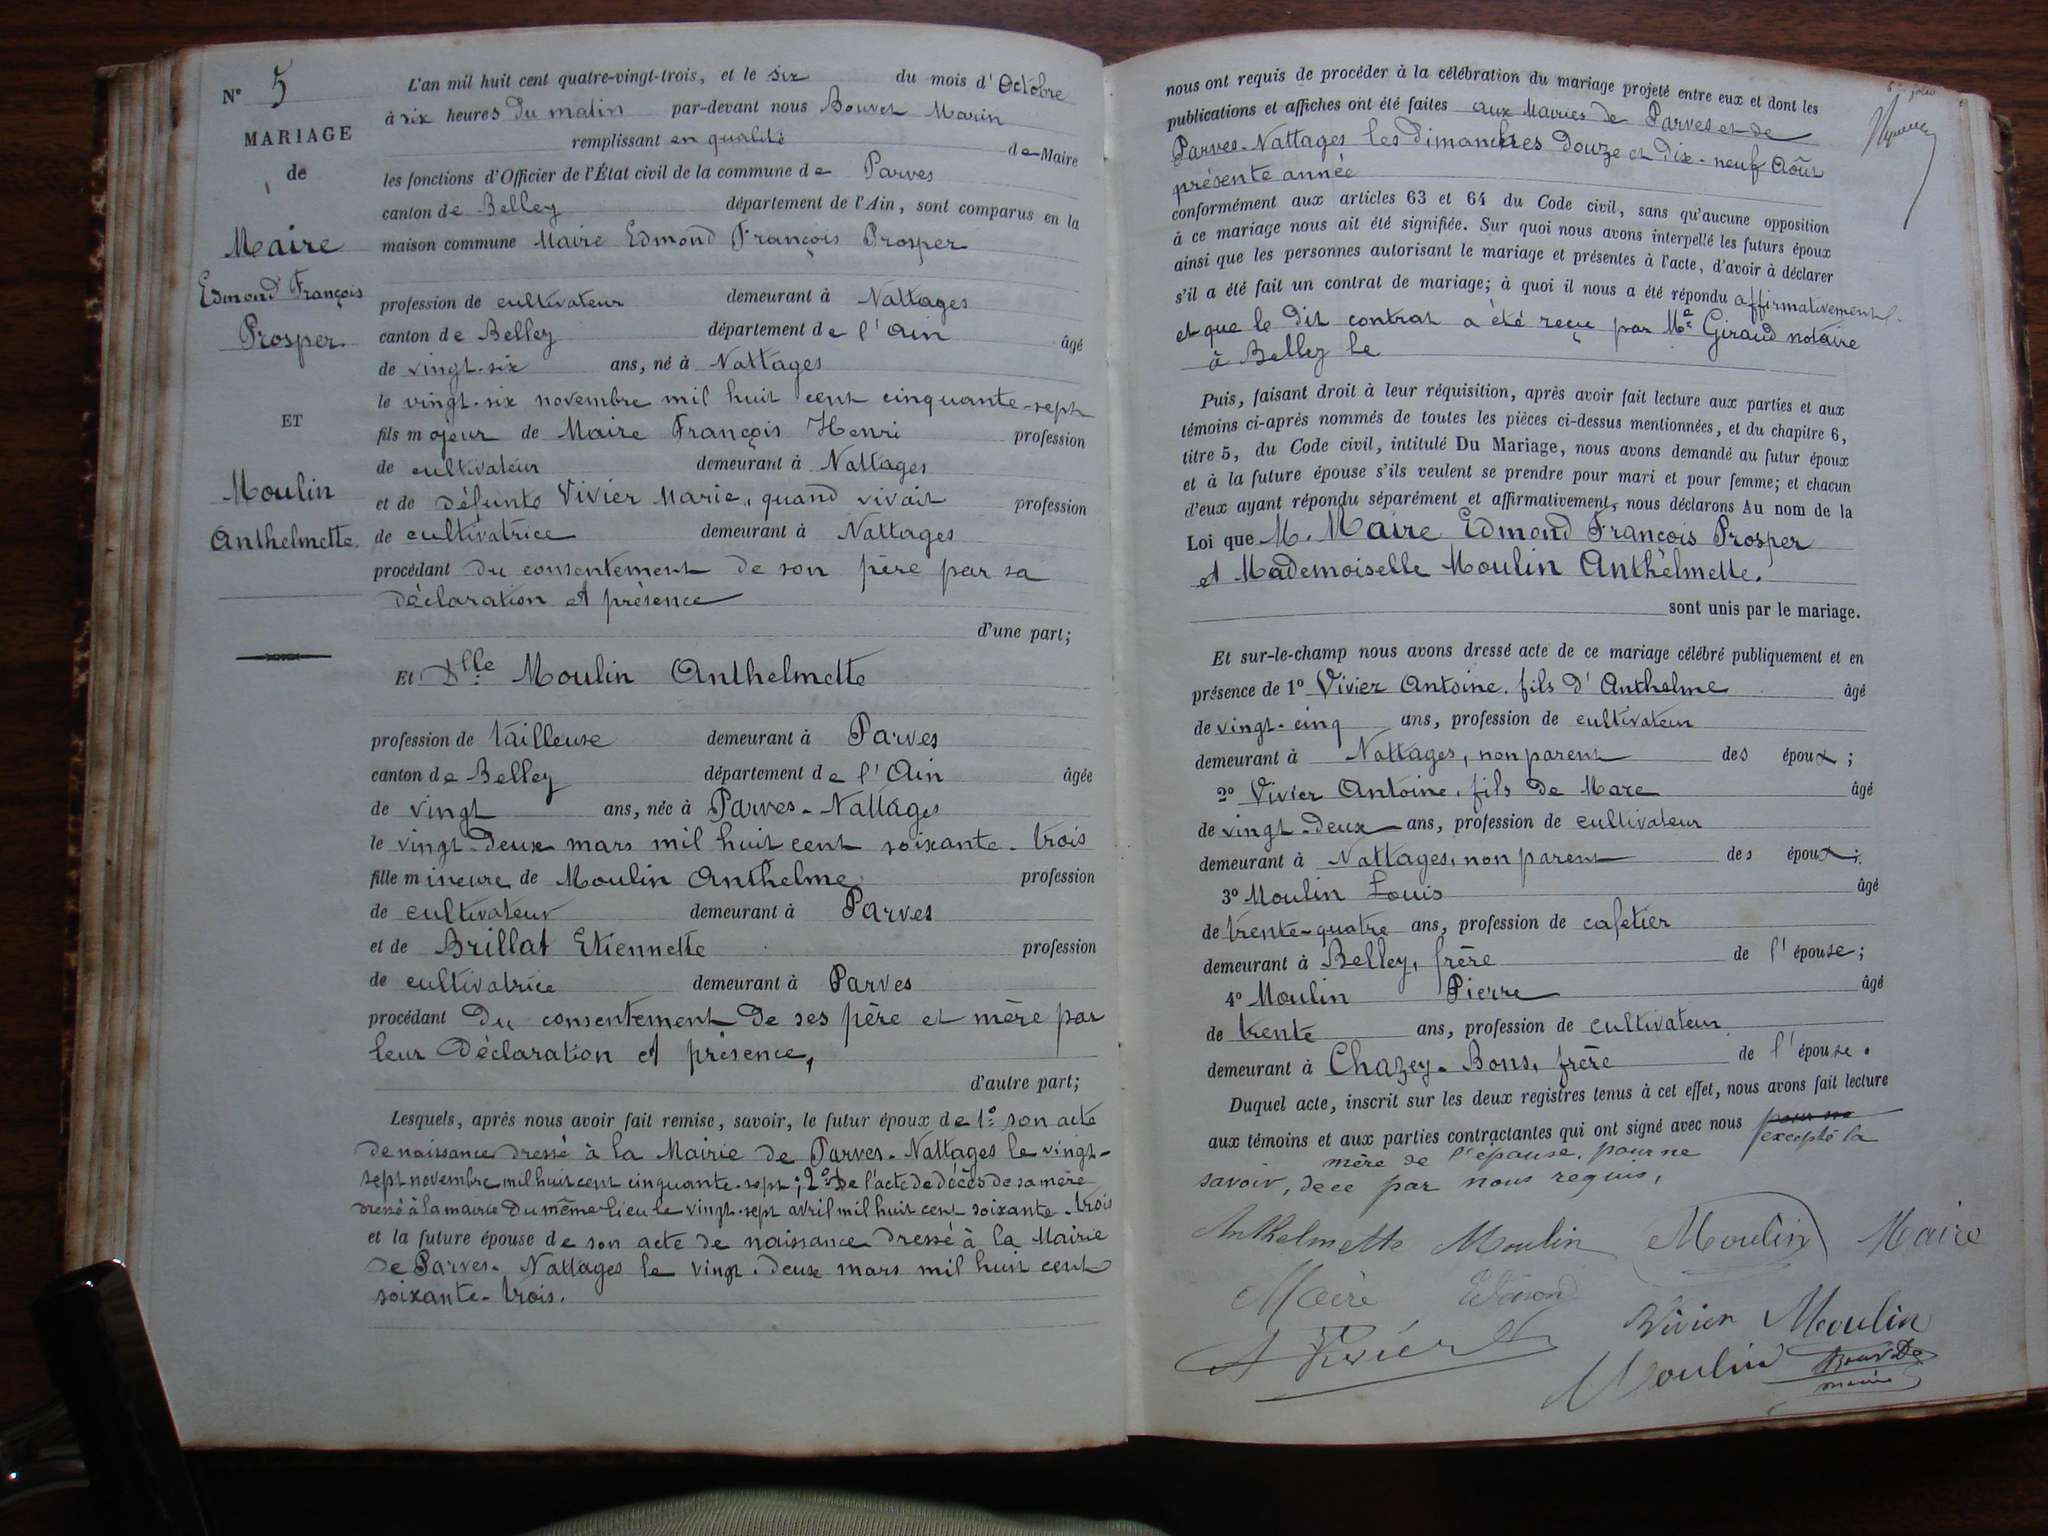 N° 5
MARIAGE
de
Maire
Edmond François
Prosper.
ET
Moulin
Anthelmette.
L'an mil huit cent quatre-vingt-trois, et le six du mois d'Octobre
à six heures du matin par-devant nous Bouvet Marin
remplissant en qualité de Maire
les fonctions d'Officier de l'État civil de la commune de Parves
canton de Belley département de l'Ain, sont comparus en la
maison commune Maire Edmond François Prosper
profession de cultivateur demeurant à Nattages
canton de Belley département de l'Ain âgé
de vingt-six ans, né à Nattages
le vingt-six novembre mil huit cent cinquante-sept
fils majeur de Maire François Henri profession
de cultivateur demeurant à Nattages
et de défunte Vivier Marie, quand vivait profession
de cultivatrice demeurant à Nattages
procédant du consentement de son père par sa
déclaration et présence
d'une part;
Et Dlle Moulin Anthelmette
profession de tailleuse demeurant à Parves
canton de Belley département de l'Ain âgée
de vingt ans, née à Parves-Nattages
le vingt-deux mars mil huit cent soixante-trois
fille mineure de Moulin Anthelme profession
de cultivateur demeurant à Parves
et de Brillat Etiennette profession
de cultivatrice demeurant à Parves
procédant du consentement de ses père et mère par
leur déclaration et présence,
d'autre part;
Lesquels, après nous avoir fait remise, savoir, le futur époux de 1° son acte
de naissance dressé à la Mairie de Parves-Nattages le vingt-
sept novembre mil huit cent cinquante-sept; 2° de l'acte de décès de sa mère
dressé à la mairie du même lieu le vingt-sept avril mil huit cent soixante-trois
et la future épouse de son acte de naissance dressé à la Mairie
de Parves-Nattages le vingt-deux mars mil huit cent
soixante-trois.
nous ont requis de procéder à la célébration du mariage projeté entre eux et dont les
publications et affiches ont été faites aux Mairies de Parves et de
Parves-Nattages les dimanches douze et dix-neuf Août
présente année
conformément aux articles 63 et 64 du Code civil, sans qu'aucune opposition
à ce mariage nous ait été signifiée. Sur quoi nous avons interpellé les futurs époux
ainsi que les personnes autorisant le mariage et présentes à l'acte, d'avoir à déclarer
s'il a été fait un contrat de mariage; à quoi il nous a été répondu affirmativement
et que le dit contrat a été reçu par Me Giraud notaire
à Belley le
Puis, faisant droit à leur réquisition, après avoir fait lecture aux parties et aux
témoins ci-après nommés de toutes les pièces ci-dessus mentionnées, et du chapitre 6,
titre 5, du Code civil, intitulé Du Mariage, nous avons demandé au futur époux
et à la future épouse s'ils veulent se prendre pour mari et pour femme; et chacun
d'eux ayant répondu séparément et affirmativement, nous déclarons Au nom de la
Loi que M. Maire Edmond François Prosper
et Mademoiselle Moulin Anthelmette.
sont unis par le mariage.
Et sur-le-champ nous avons dressé acte de ce mariage célébré publiquement et en
présence de 1° Vivier Antoine, fils d'Anthelme âgé
de vingt-cinq ans, profession de cultivateur
demeurant à Nattages, non parent des époux;
2° Vivier Antoine, fils de Marc âgé
de vingt-deux ans, profession de cultivateur
demeurant à Nattages, non parent des époux;
3° Moulin Louis âgé
de trente-quatre ans, profession de cafetier
demeurant à Belley, frère de l'épouse;
4° Moulin Pierre âgé
de trente ans, profession de cultivateur
demeurant à Chazey-Bons, frère de l'épouse.
Duquel acte, inscrit sur les deux registres tenus à cet effet, nous avons fait lecture
aux témoins et aux parties contractantes qui ont signé avec nous pour ne
excepté la
mère de l'épouse, pour ne
savoir, de ce par nous requis,
Anthelmette Moulin Moulin Maire
Maire Edmond
Vivier Moulin
A Vivier
Moulin